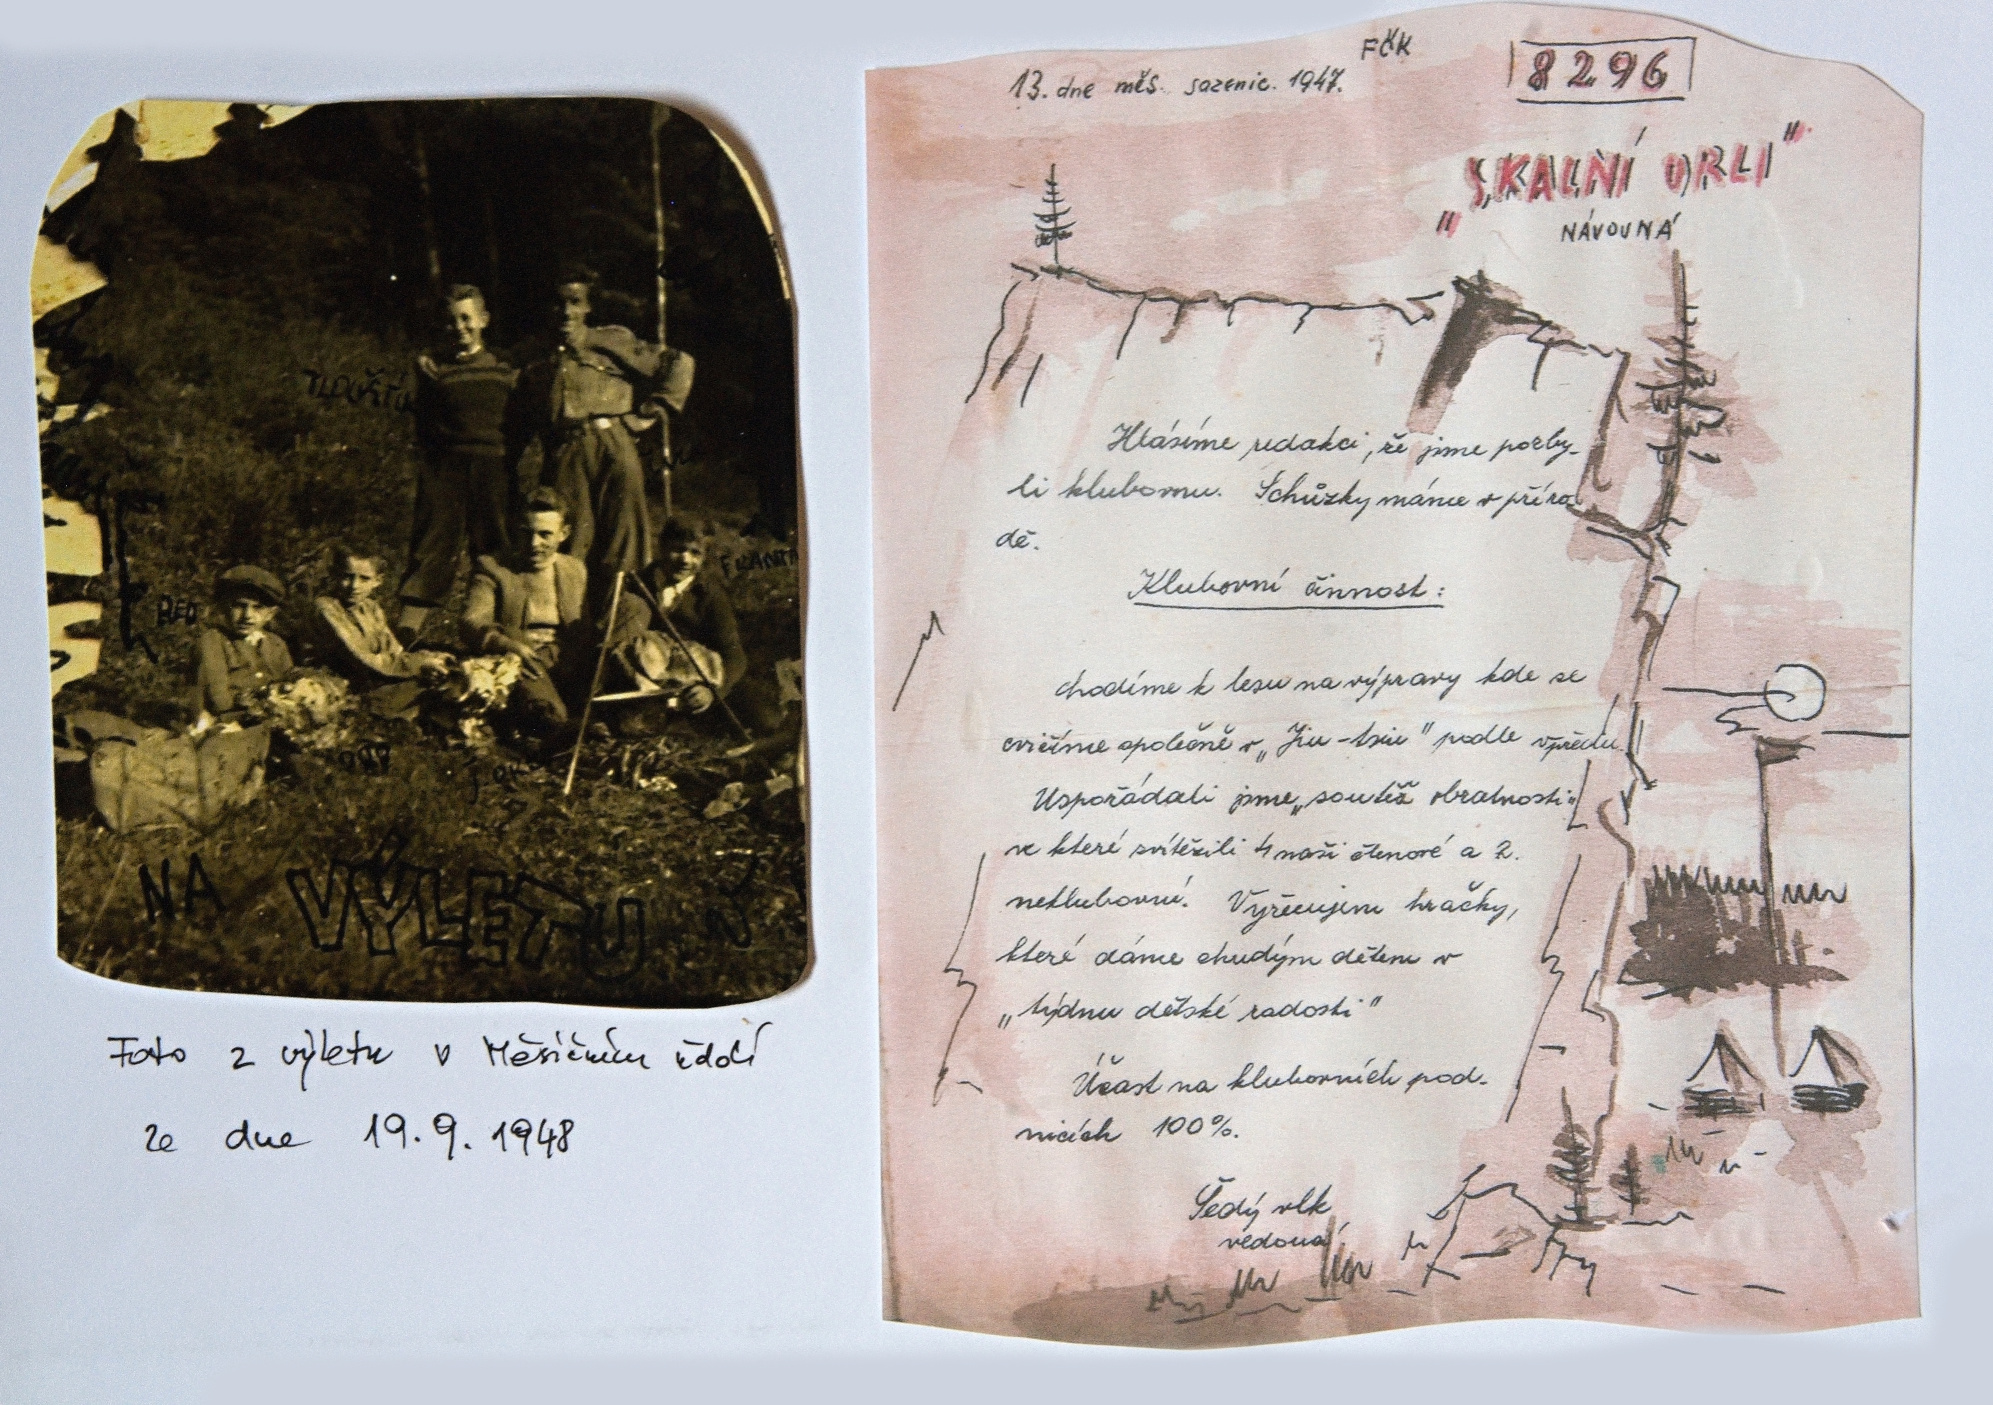 TLOUŠŤÍK
RED
FRANTA
NA VÝLETU V
Foto z výletu v Měsíčním údolí
ze dne 19.9.1948
FČK
8296
13. dne měs. sazenic. 1947.
"SKALNÍ ORLI"
NÁVOUNÁ
Hlásíme redakci, že jsme pozby-
li klubovnu. Schůzky máme v příro-
dě.
Klubovní činnost:
chodíme k lesu na výpravy kde se
cvičíme společně v „Jiu-tsiu" podle
Uspořádali jsme „soutěž obratnosti"
ve které zvítězili 4 naši členové a 2.
neklubovní. Vyřezujem hračky,
které dáme chudým dětem v
„týdnu dětské radosti"
Účast na klubovních pod-
nicích 100%.
Šedý vlk